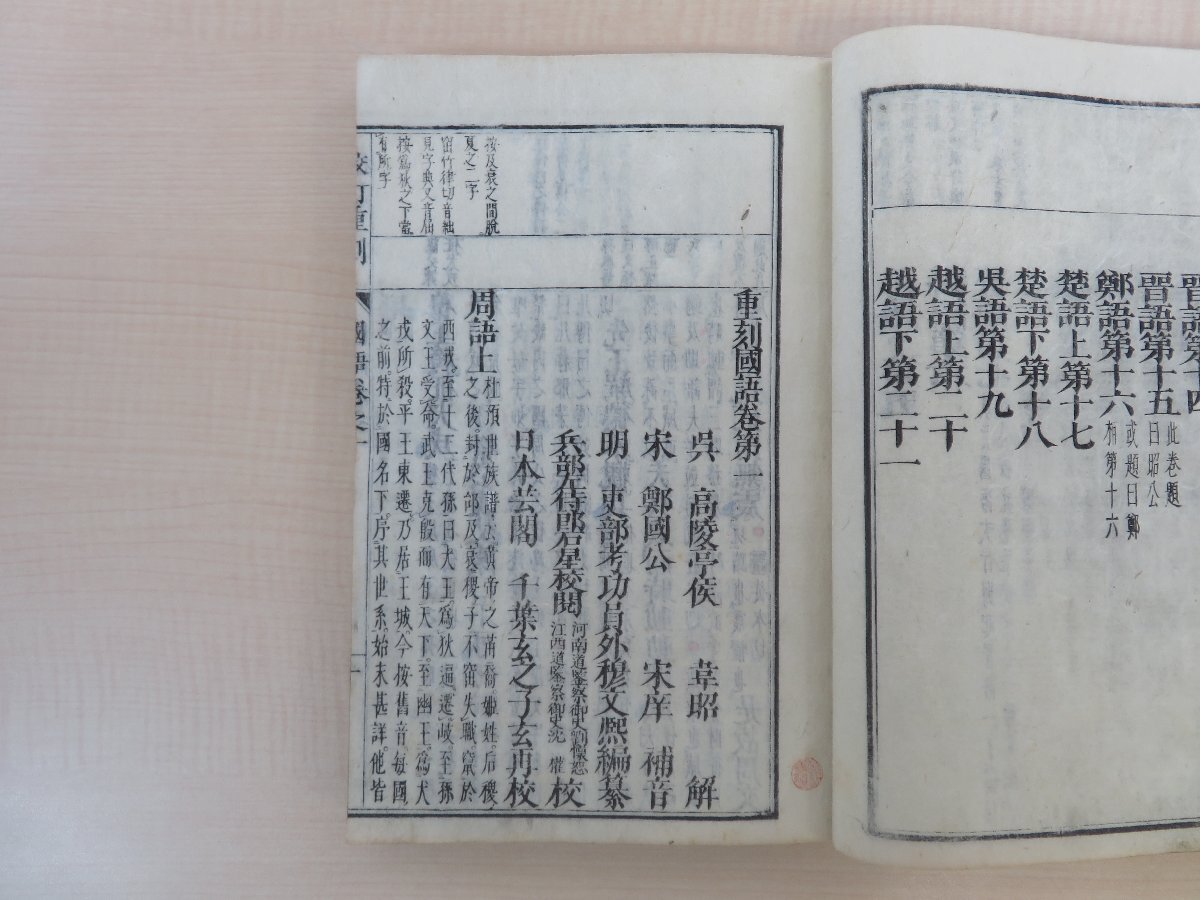 晉語第十四
晉語第十五 此卷題曰昭公
鄭語第十六 或題曰鄭桓第十六
楚語上第十七
楚語下第十八
吳語第十九
越語上第二十
越語下第二十一
重刻國語卷第一
吳 高陵亭侯 韋昭 解
宋 鄭國公 宋庠 補音
明 吏部考功員外穆文熙編纂
兵部左侍郎石星校閱 河南道監察御史劉懷恕 江西道監察御史沈權 校
日本芸閣 千葉玄之子玄再校
周語上 杜預世族譜云黃帝之苗裔姬姓后稷
之後封於邰及衰稷子不窋失職竄於
西戎至十二代孫曰大王爲狄逼遷岐至孫
文王受命武王克殷而有天下至幽王爲犬
戎所殺平王東遷乃居王城今按舊音每國
之前特於國名下序其世系始末甚詳他皆
按及衰之間脫
夏之二字
窋竹律切音絀
見字典又音
按爲狄之下當
有所字
校訂重刻 國語卷之一 一